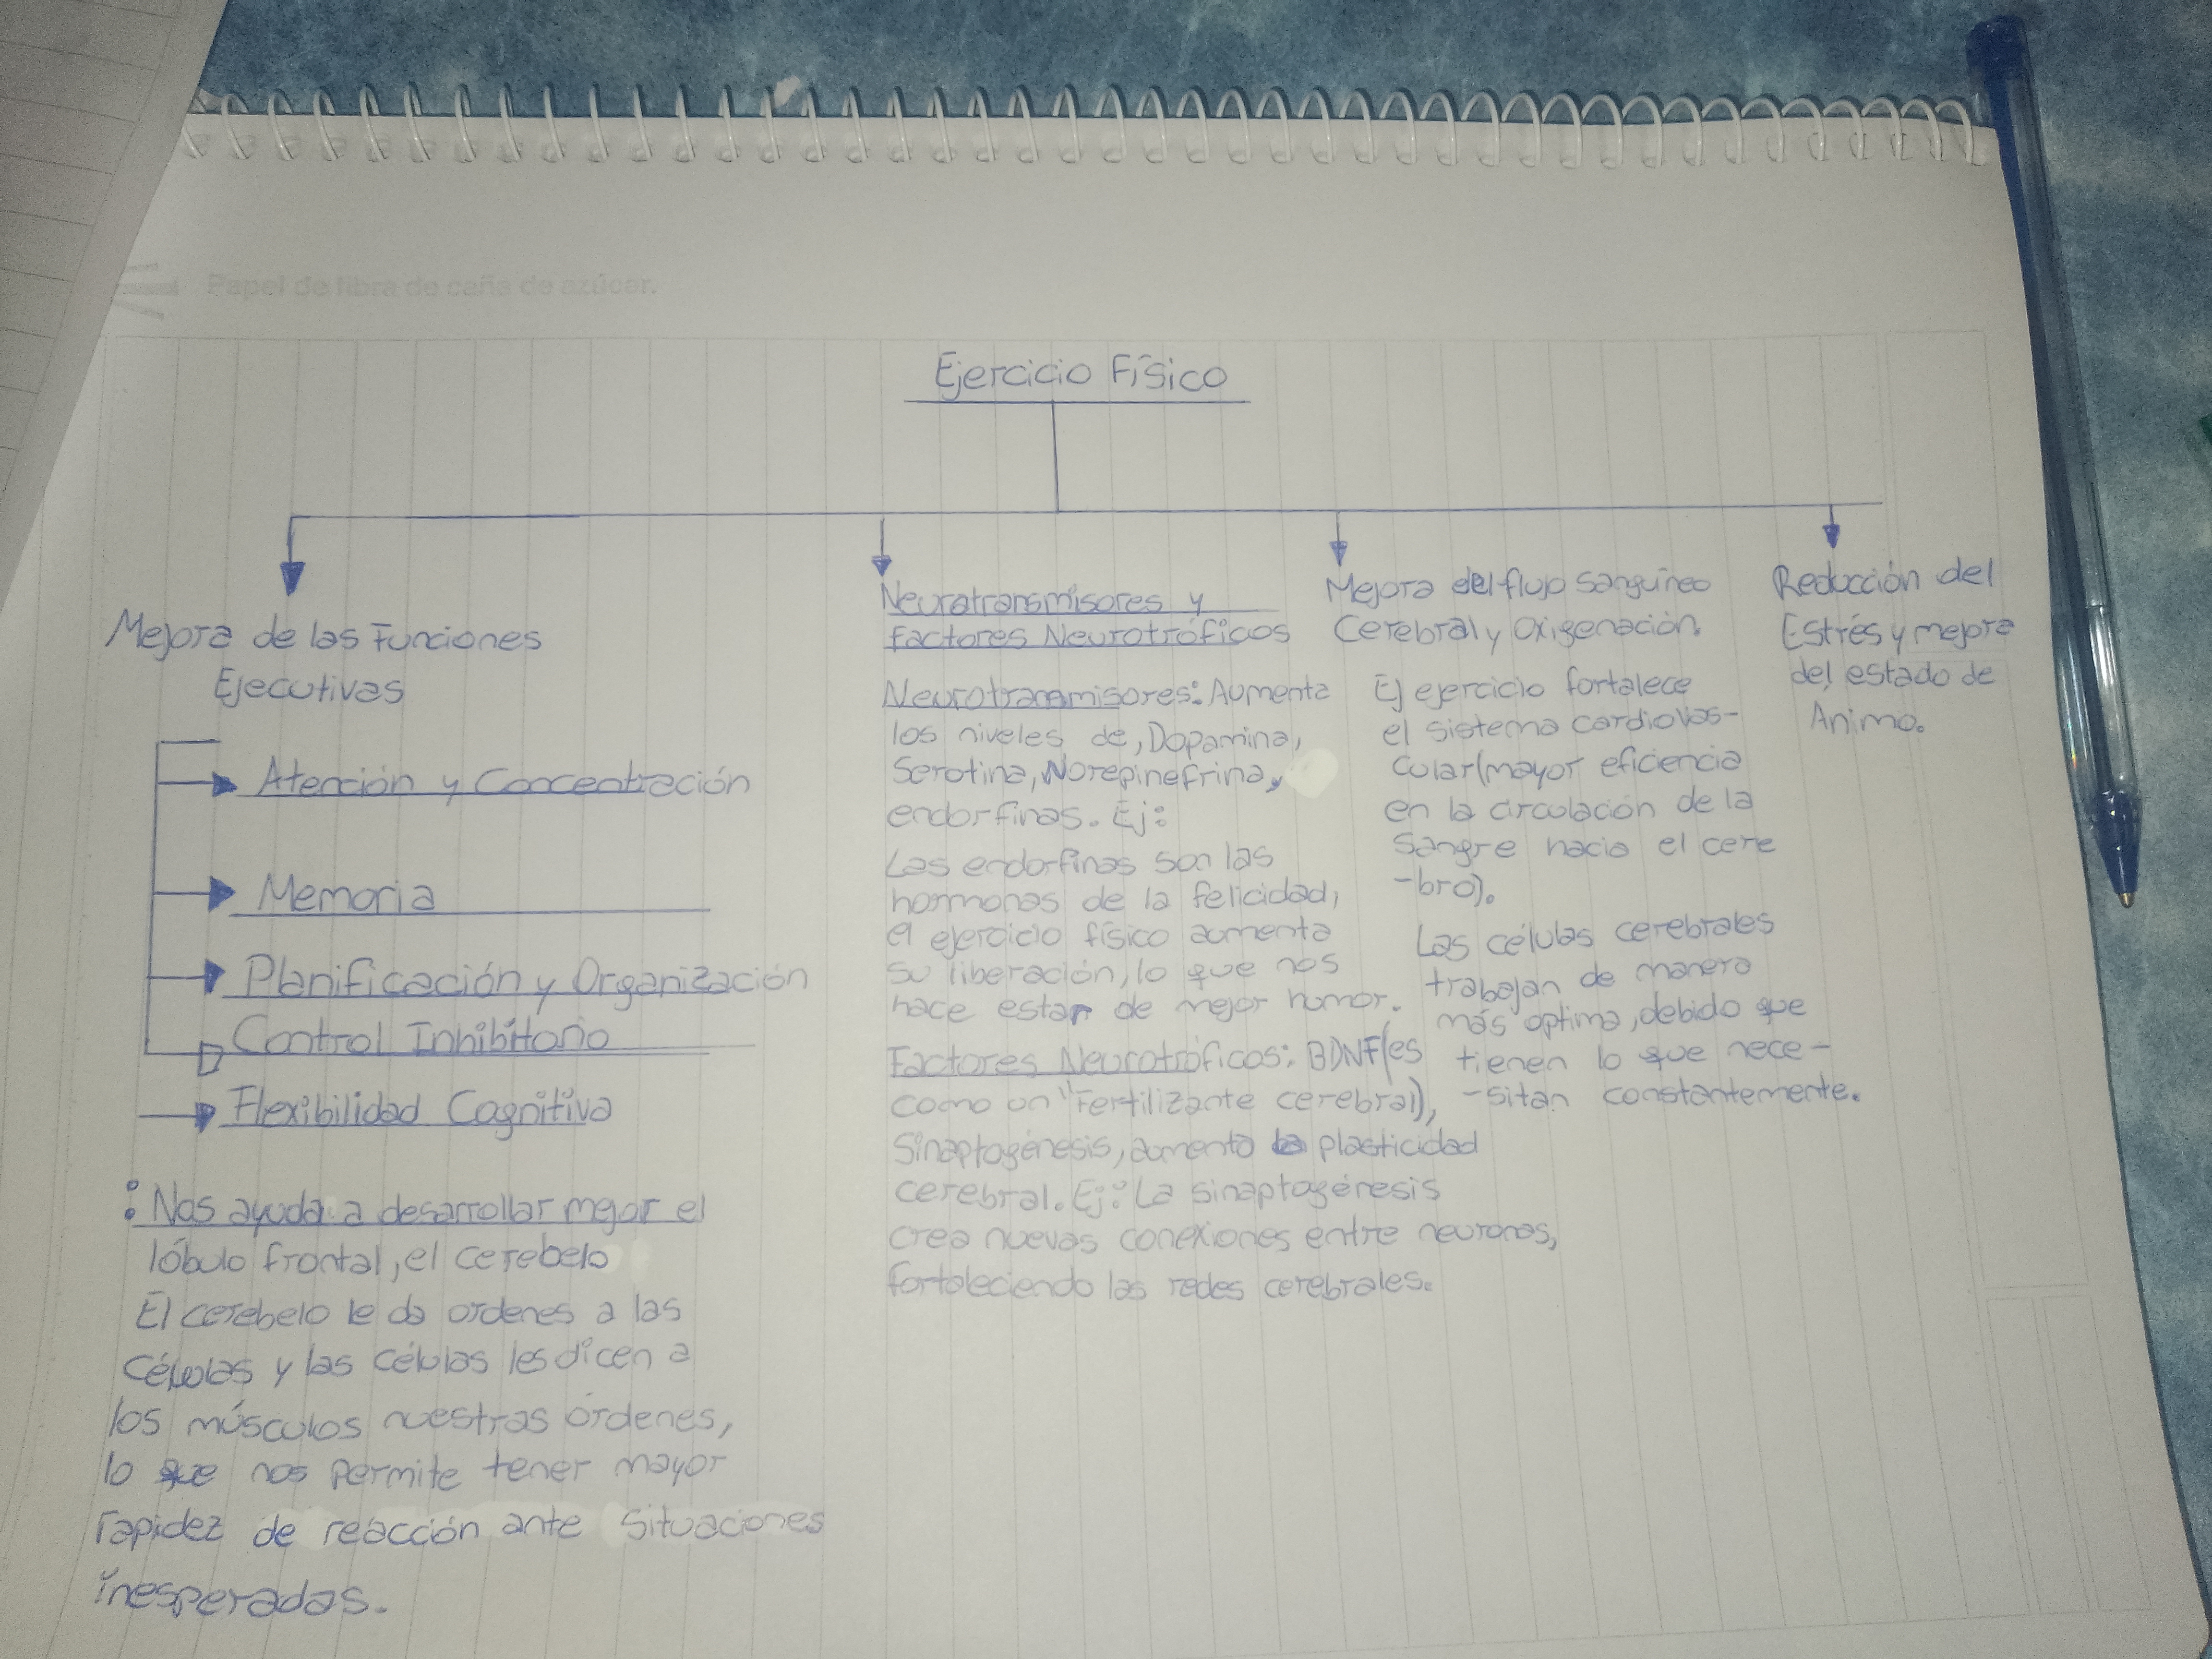 Papel de fibra de caña de azúcar.
Ejercicio Físico
Mejora de las Funciones
Ejecutivas
Atención y Concentración
Memoria
Planificación y Organización
Control Inhibitorio
Flexibilidad Cognitiva
: Nos ayuda a desarrollar mejor el
lóbulo frontal, el cerebelo
El cerebelo le da ordenes a las
Células y las células les dicen a
los músculos nuestras órdenes,
lo que nos permite tener mayor
rapidez de reacción ante situaciones
inesperadas.
Neurotransmisores y
factores Neurotróficos
Neurotransmisores: Aumenta
los niveles de, Dopamina,
Serotina, Norepinefrina,
endorfinas. Ej:
Las endorfinas son las
hormonas de la felicidad,
el ejercicio físico aumenta
su liberación, lo que nos
hace estar de mejor humor.
Factores Neurotróficos: BDNF(es
como un "Fertilizante cerebral),
Sinaptogénesis, aumento la plasticidad
cerebral. Ej: La sinaptogénesis
crea nuevas conexiones entre neuronas,
fortaleciendo las redes cerebrales.
Mejora del flujo Sanguíneo
Cerebral y Oxigenación.
El ejercicio fortalece
el sistema cardiovas-
cular(mayor eficiencia
en la circulación de la
Sangre hacia el cere
-bro).
Las células cerebrales
trabajan de manera
más optima, debido que
tienen lo que nece-
-sitan constantemente.
Reducción del
Estrés y mejora
del estado de
Animo.